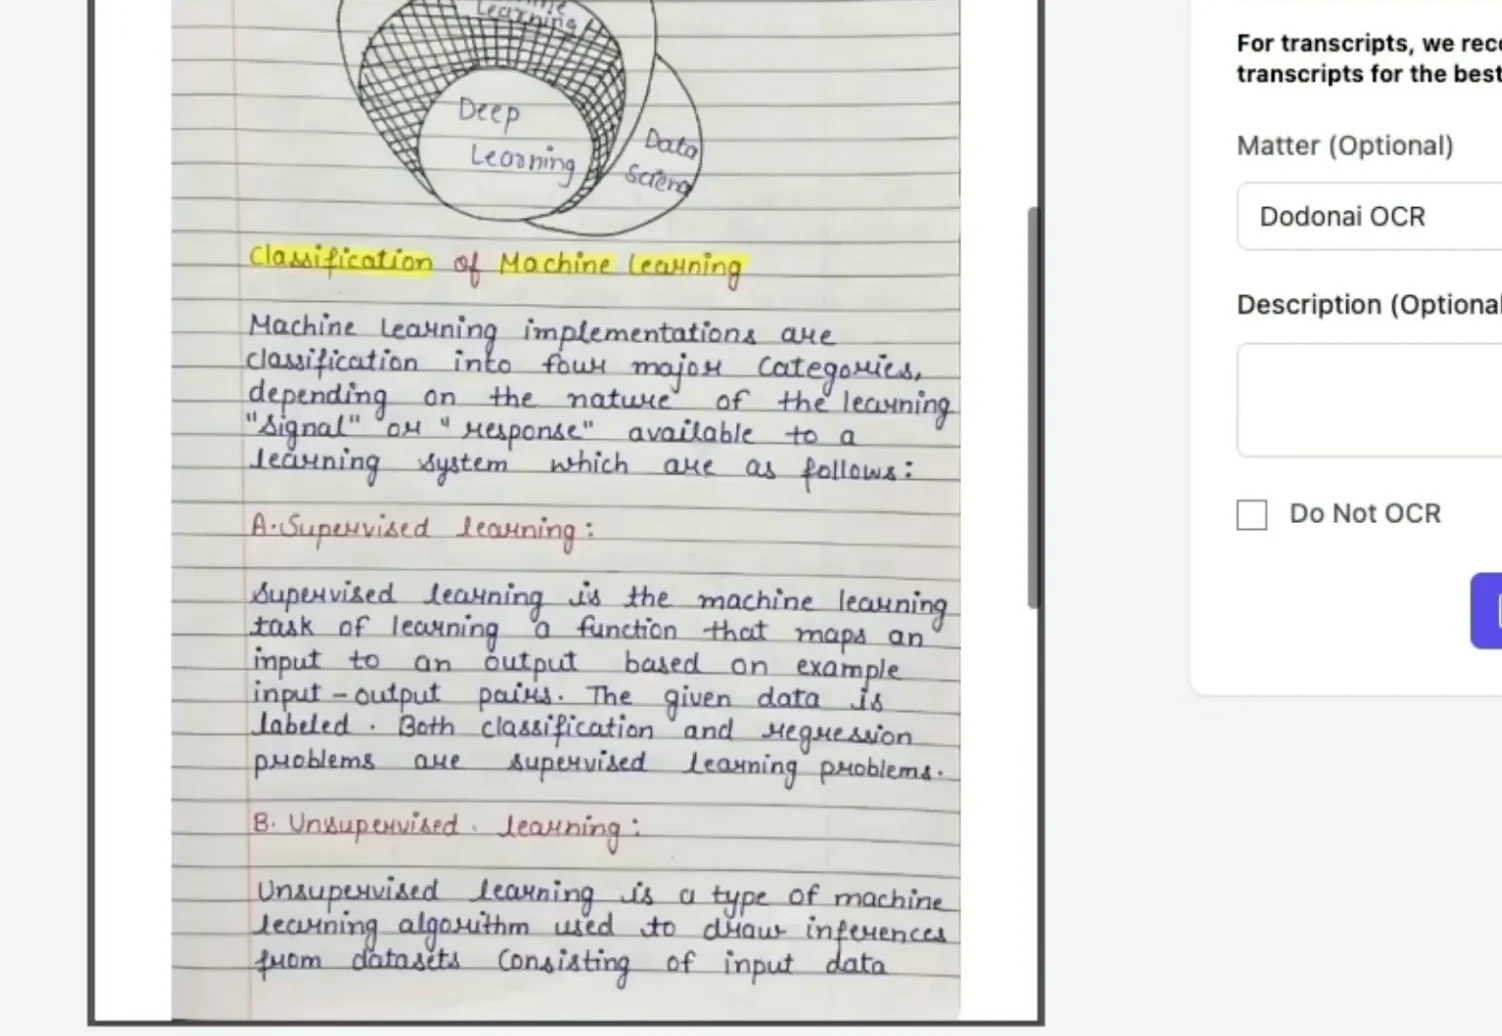 Learning
Deep
Learning
Data
Classification of Machine Learning
Machine Learning implementations are
classification into four major Categories,
depending on the nature of the learning
"signal" or "response" available to a
learning system which are as follows:
A. Supervised learning:
Supervised learning is the machine learning
task of learning a function that maps an
input to an output based on example
input-output pairs. The given data is
labeled. Both classification and regression
problems are supervised learning problems.
B. Unsupervised learning:
Unsupervised learning is a type of machine
learning algorithm used to draw inferences
from datasets Consisting of input data
For transcripts, we
transcripts for the best
Matter (Optional)
Dodonai OCR
Description (Optional
Do Not OCR